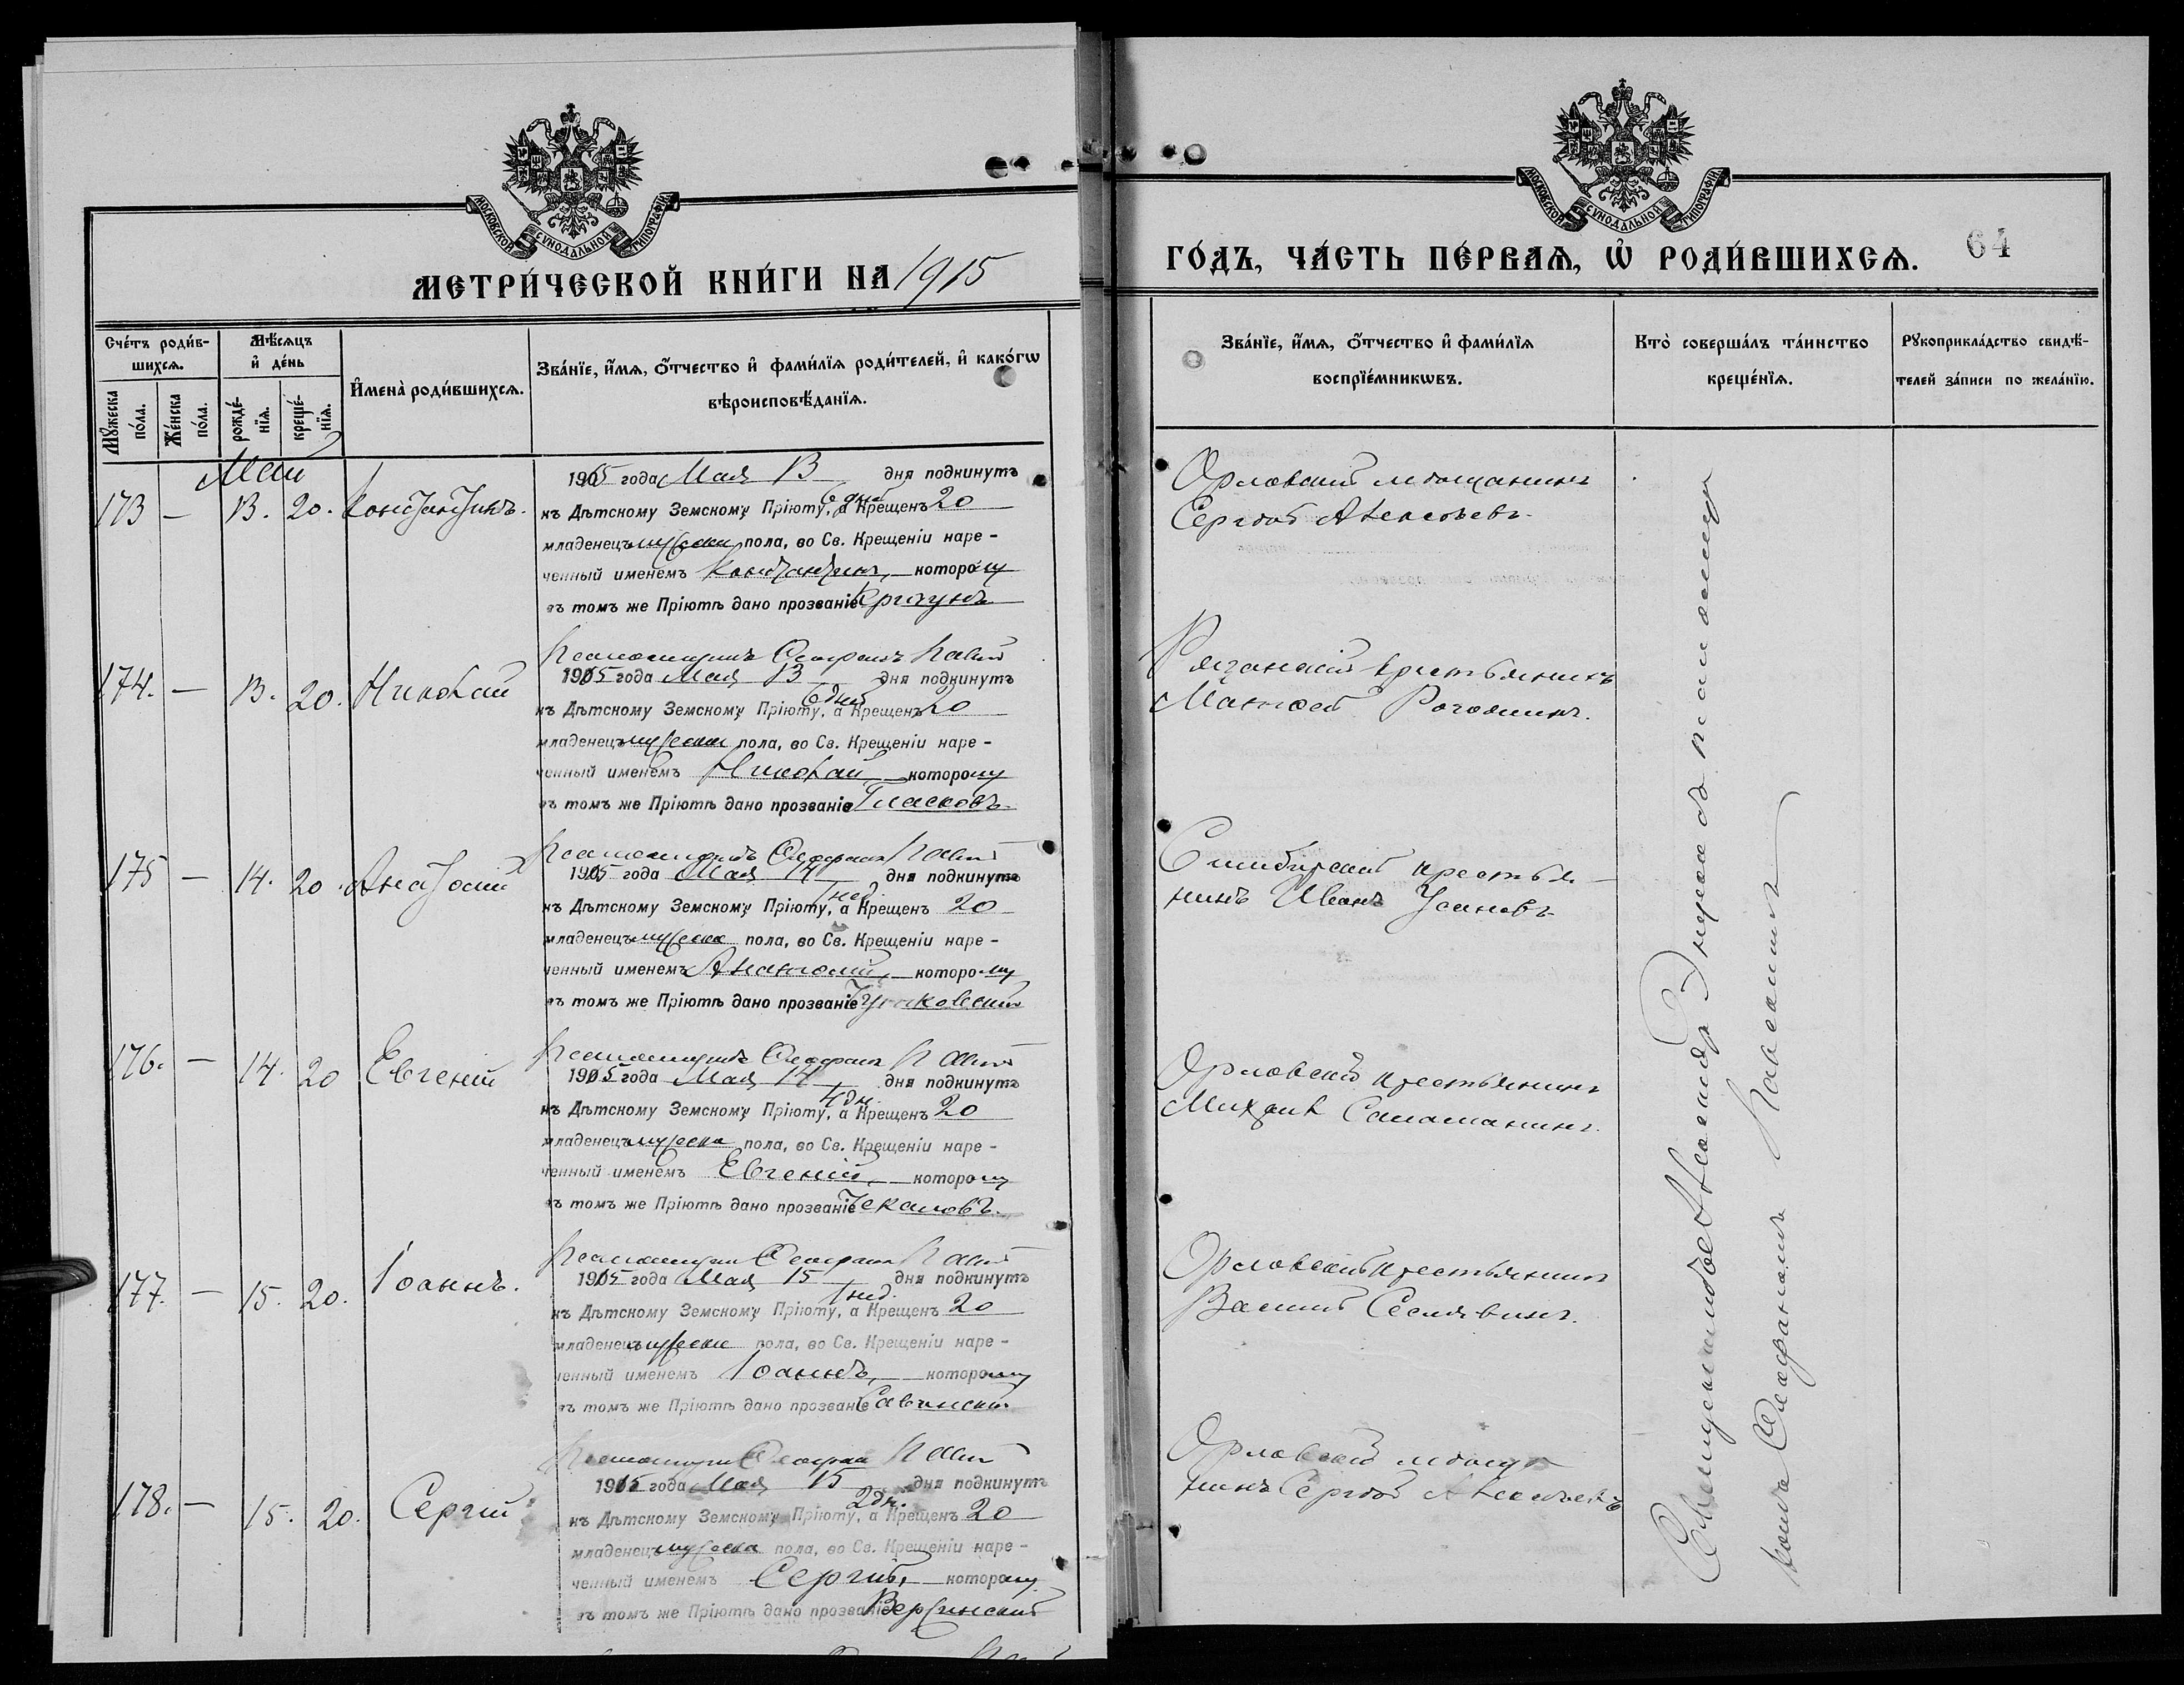 МОСКОВСКОЙ СѴНОДАЛЬНОЙ ТИПОГРАФІИ
МЕТРИ́ЧЕСКОЙ КНИ́ГИ НА 1915
Сче́тъ роди́в-
шихсѧ.
Мꙋ́жеска
по́ла.
Же́нска
по́ла.
Мѣ́сѧцъ
и҆ де́нь
рожде́-
нїѧ.
креще́-
нїѧ.
И҆мена̀ роди́вшихсѧ.
Зва́нїе, и҆́мѧ, ѻ҆́тчество и҆ фами́лїѧ роди́телей, и҆ како́гѡ
вѣроисповѣ́данїѧ.
Май
173 — 13. 20. Константинъ.
1915 года Мая 13 дня подкинутъ
6 дней
къ Дѣтскому Земскому Пріюту, а Крещенъ 20
младенецъ мужеска пола, во Св. Крещеніи наре-
ченный именемъ Константинъ, которому
въ томъ же Пріютѣ дано прозваніе
174. — 13. 20. Николай
1915 года Мая 13 дня подкинутъ
6 дней
къ Дѣтскому Земскому Пріюту, а Крещенъ 20
младенецъ мужеска пола, во Св. Крещеніи наре-
ченный именемъ Николай, которому
въ томъ же Пріютѣ дано прозваніе Гласковъ.
175 — 14. 20. Анатолій
1915 года Мая 14 дня подкинутъ
1 нед.
къ Дѣтскому Земскому Пріюту, а Крещенъ 20
младенецъ мужеска пола, во Св. Крещеніи наре-
ченный именемъ Анатолій, которому
въ томъ же Пріютѣ дано прозваніе
176. — 14. 20 Евгеній
1915 года Мая 14 дня подкинутъ
4 дн.
къ Дѣтскому Земскому Пріюту, а Крещенъ 20
младенецъ мужеска пола, во Св. Крещеніи наре-
ченный именемъ Евгеній, которому
въ томъ же Пріютѣ дано прозваніе Чекаловъ.
177. — 15. 20. Іоаннъ.
1915 года Мая 15 дня подкинутъ
1 нед.
къ Дѣтскому Земскому Пріюту, а Крещенъ 20
младенецъ мужеска пола, во Св. Крещеніи наре-
ченный именемъ Іоаннъ, которому
въ томъ же Пріютѣ дано прозваніе Савинскій
178. — 15. 20. Сергій
1915 года Мая 15 дня подкинутъ
2 дн.
къ Дѣтскому Земскому Пріюту, а Крещенъ 20
младенецъ мужеска пола, во Св. Крещеніи наре-
ченный именемъ Сергій, которому
въ томъ же Пріютѣ дано прозваніе Вержинскій
МОСКОВСКОЙ СѴНОДАЛЬНОЙ ТИПОГРАФІИ
ГО́ДЪ, ЧА́СТЬ ПЕ́РВАѦ, Ѽ РОДИ́ВШИХСѦ. 64
Зва́нїе, и҆́мѧ, ѻ҆́тчество и҆ фами́лїѧ
воспрїе́мникѡвъ.
Кто̀ соверша́лъ та́инство
креще́нїѧ.
Рꙋкоприкла́дство свидѣ́-
телей за́писи по жела́нїю.
Орловскій мѣщанинъ
Сергѣй Алексѣевъ.
Рязанскій крестьянинъ
Матвей Рогожинъ.
Симбирскій крестья-
нинъ Иванъ Усановъ
Орловскій крестьянинъ
Михаилъ
Орловскій крестьянинъ
Василій
Орловскій мѣща
нинъ Сергѣй Алексѣевъ
Священникъ Александръ